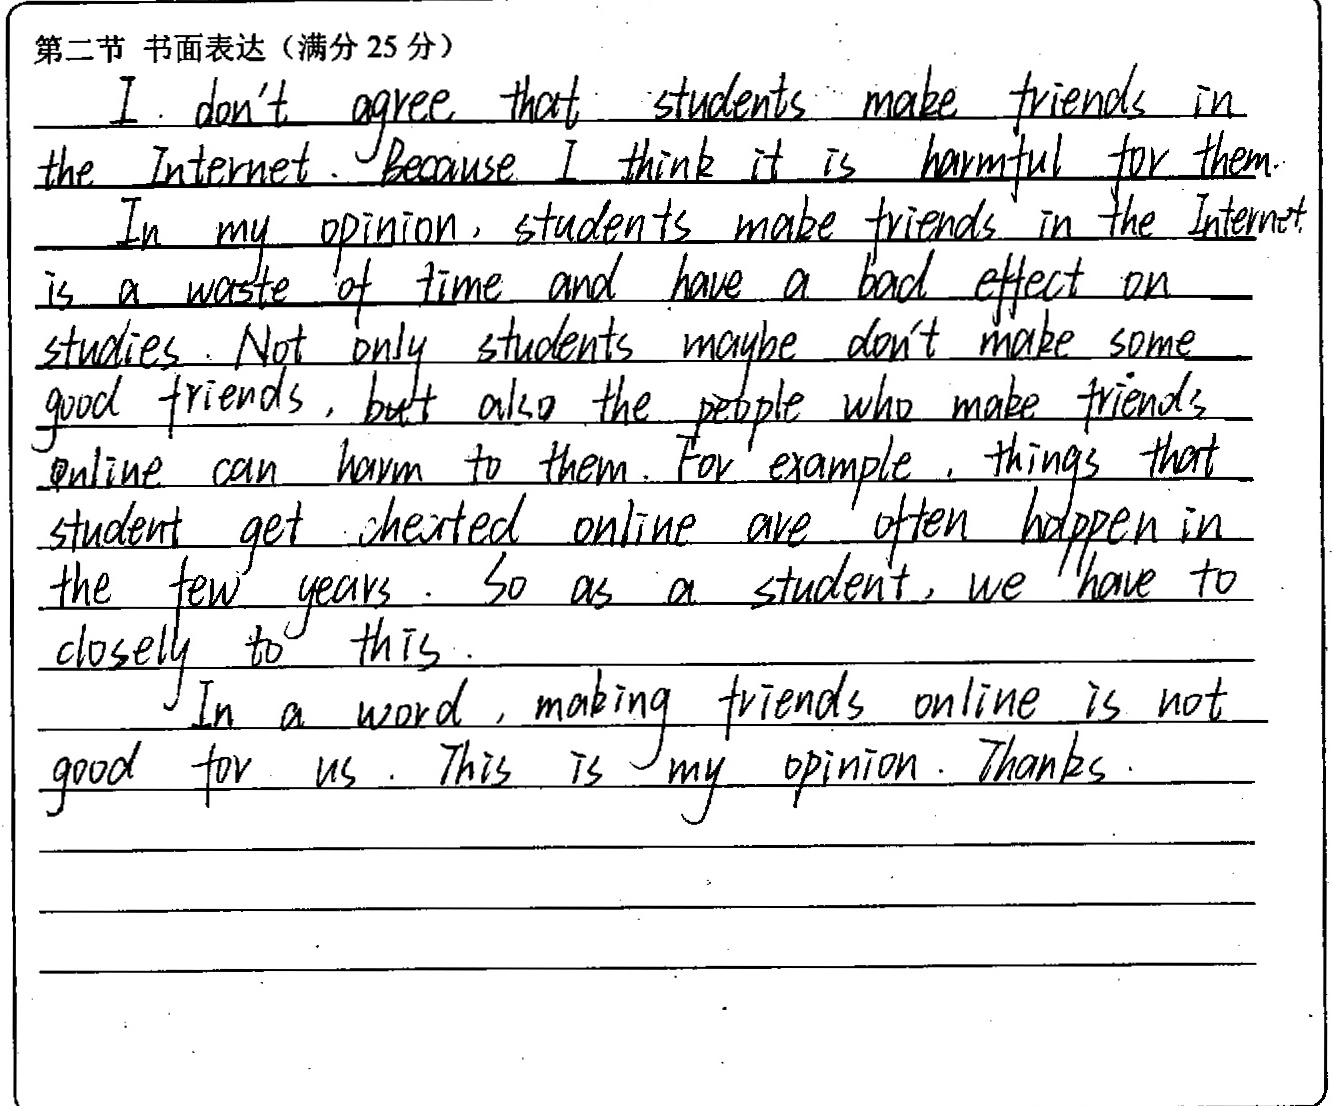 第二节 书面表达（满分 25 分）
I don't agree that students make friends in
the Internet. Because I think it is harmful for them.
In my opinion, students make friends in the Internet
is a waste of time and have a bad effect on
studies. Not only students maybe don't make some
good friends, but also the people who make friends
online can harm to them. For example, things that
student get cheated online are often happen in
the few years. So as a student, we have to
closely to this.
In a word, making friends online is not
good for us. This is my opinion. Thanks.